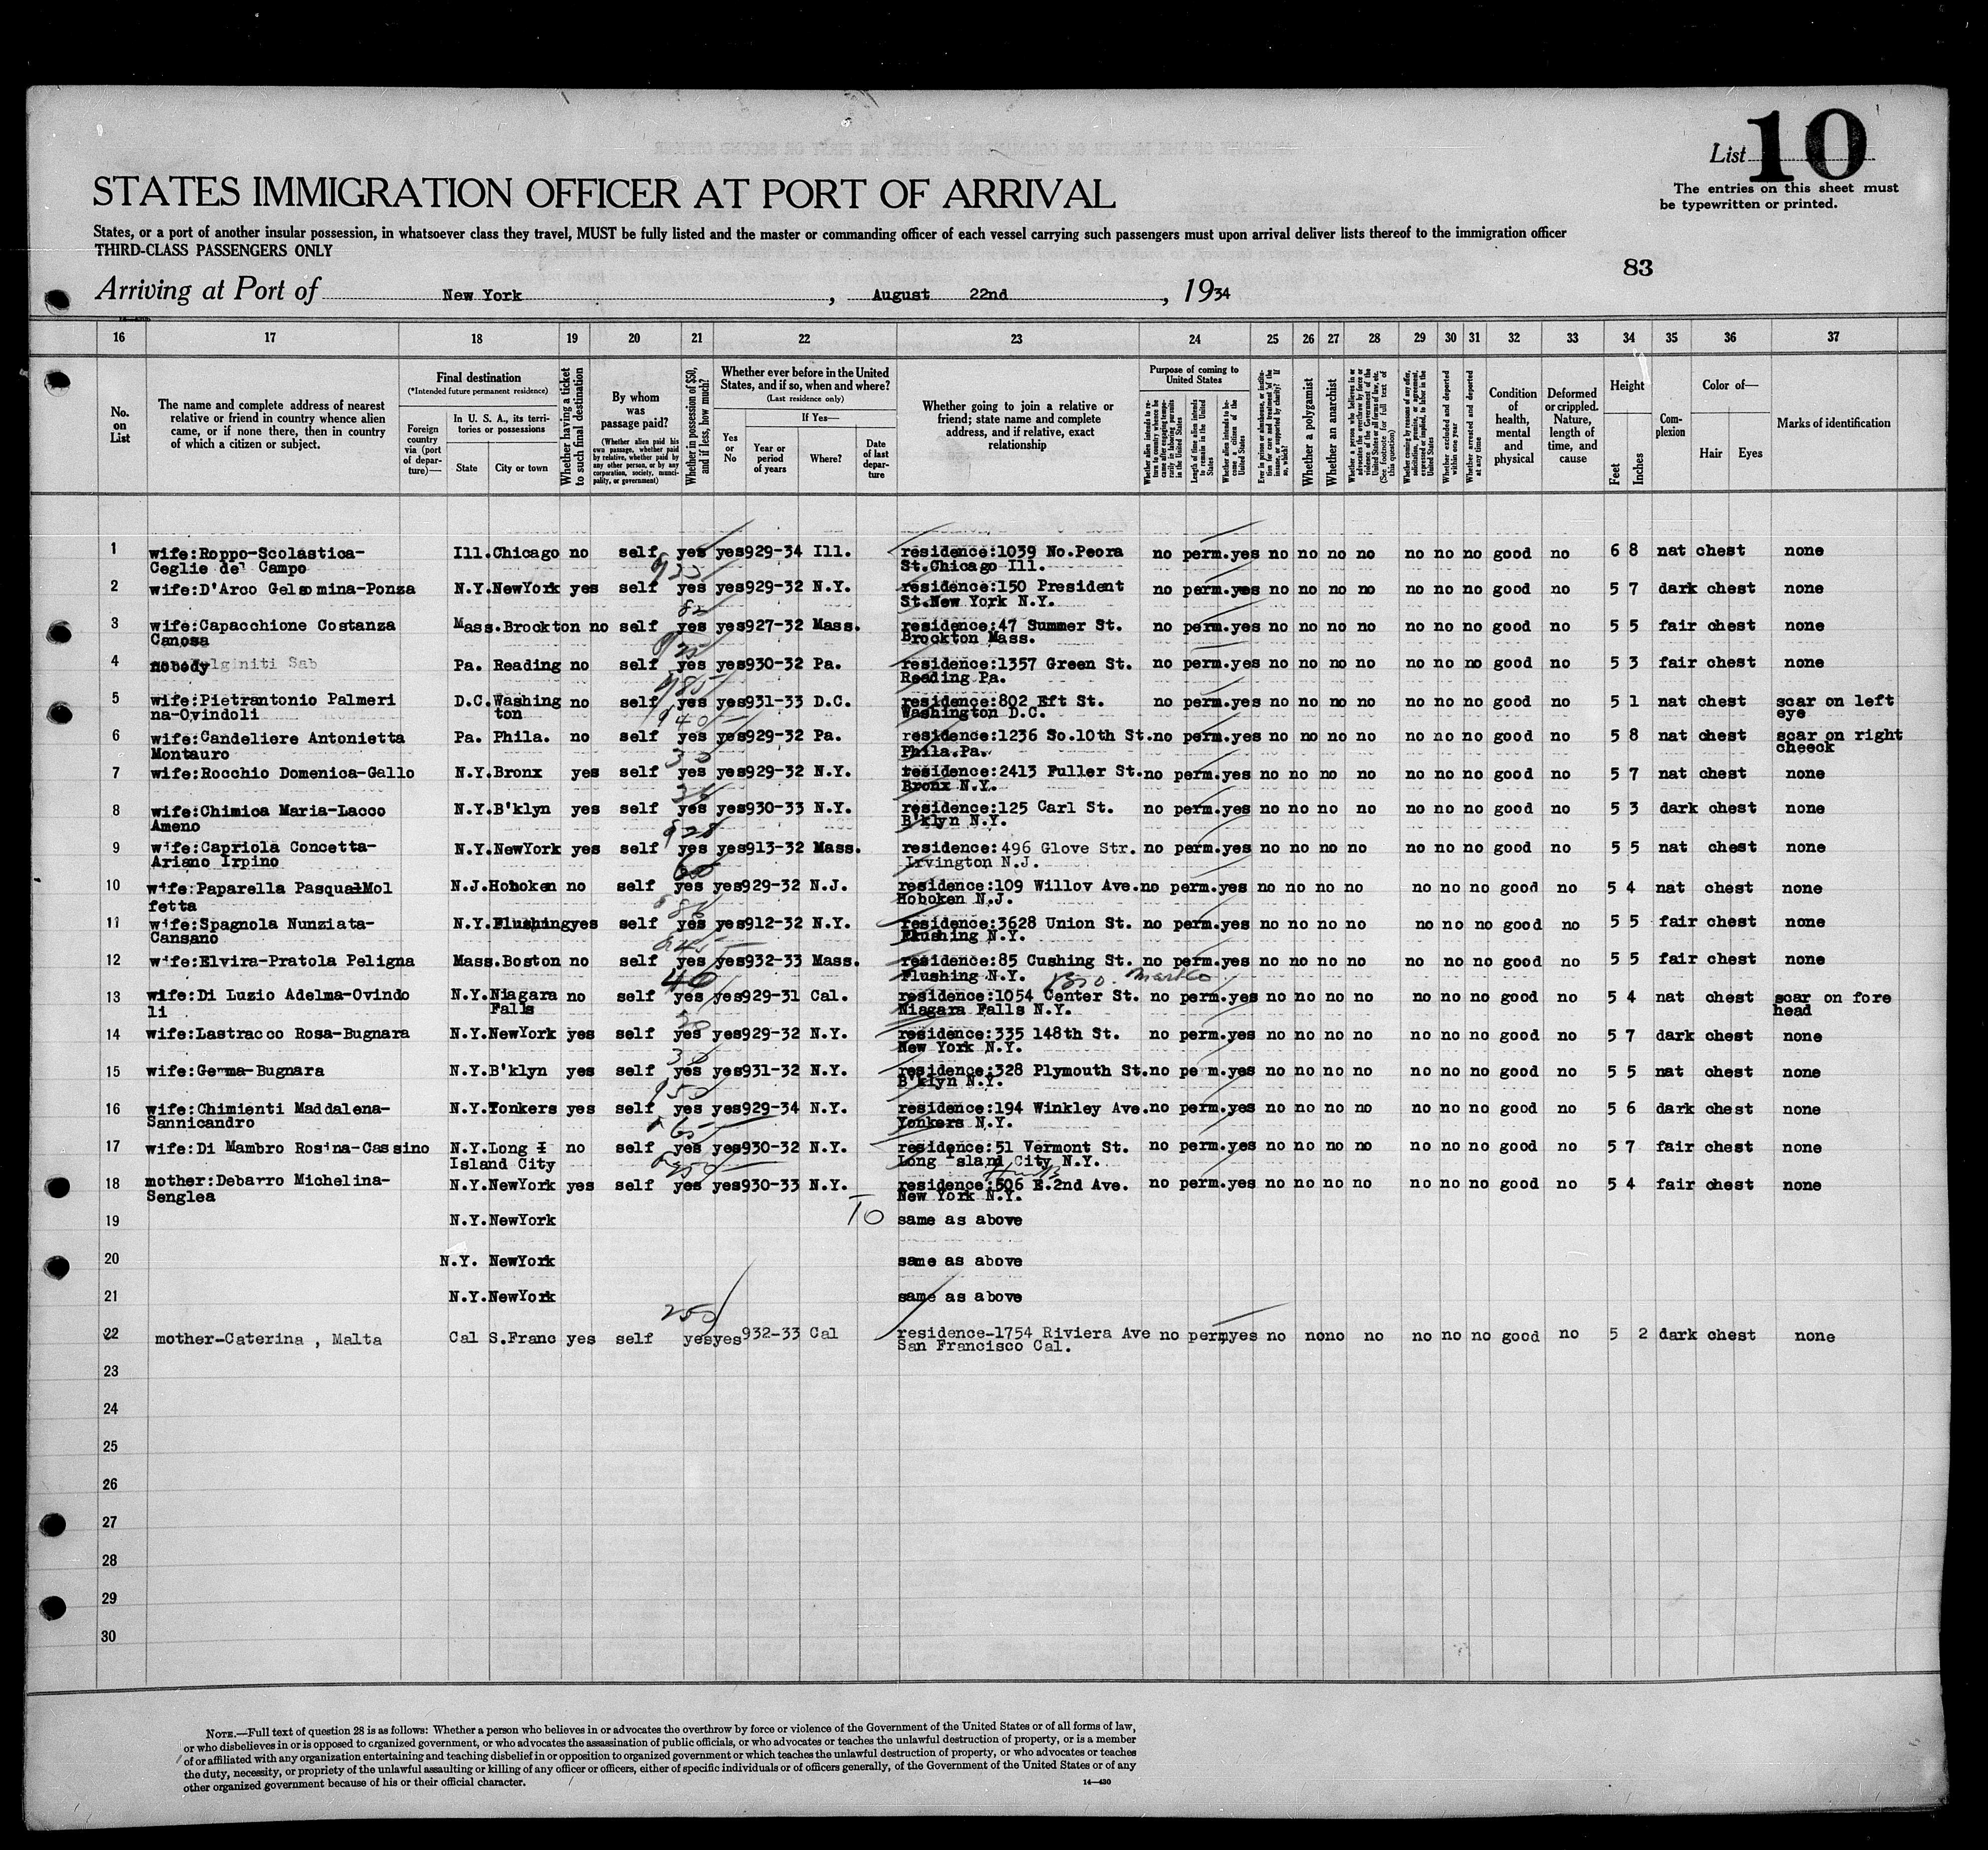 List 10
The entries on this sheet must
be typewritten or printed.
STATES IMMIGRATION OFFICER AT PORT OF ARRIVAL
States, or a port of another insular possession, in whatsoever class they travel, MUST be fully listed and the master or commanding officer of each vessel carrying such passengers must upon arrival deliver lists thereof to the immigration officer
THIRD-CLASS PASSENGERS ONLY
83
Arriving at Port of New York, August 22nd, 1934
16 17 18 19 20 21 22 23 24 25 26 27 28 29 30 31 32 33 34 35 36 37
No. on List
The name and complete address of nearest relative or friend in country whence alien came, or if none there, then in country of which a citizen or subject.
Final destination
(*Intended future permanent residence)
Foreign country via (port of departure)—
In U. S. A., its territories or possessions
State
City or town
Whether having a ticket to such final destination
By whom was passage paid?
(Whether alien paid his own passage, whether paid by relative, whether paid by any other person, or by any corporation, society, municipality, or government)
Whether in possession of $50, and if less, how much?
Whether ever before in the United States, and if so, when and where?
(Last residence only)
Yes or No
If Yes—
Year or period of years
Where?
Date of last departure
Whether going to join a relative or friend; state name and complete address, and if relative, exact relationship
Purpose of coming to United States
Whether alien intends to return to country whence he came after engaging temporarily in laboring pursuits in the United States
Length of time alien intends to remain in the United States
Whether alien intends to become a citizen of the United States
Ever in prison or almshouse, or institution for care and treatment of the insane, or supported by charity? If so, which?
Whether a polygamist
Whether an anarchist
Whether a person who believes in or advocates the overthrow by force or violence of the Government of the United States or all forms of law, etc. (See footnote for full text of this question)
Whether coming by reasons of any offer, solicitation, promise, or agreement, expressed or implied, to labor in the United States
Whether excluded and deported within one year
Whether arrested and deported at any time
Condition of health, mental and physical
Deformed or crippled. Nature, length of time, and cause
Height
Feet
Inches
Complexion
Color of—
Hair
Eyes
Marks of identification
1 wife:Roppo-Scolastica- Ill. Chicago no self yes yes 929-34 Ill. residence:1039 No.Peora no perm. yes no no no no no no no good no 6 8 nat chest none
Ceglie del Campo St.Chicago Ill.
2 wife:D'Arco Gelsomina-Ponza N.Y. NewYork yes self yes yes 929-32 N.Y. residence:150 President no perm. yes no no no no no no no good no 5 7 dark chest none
St.New York N.Y.
3 wife:Capacchione Costanza Mass. Brockton no self yes yes 927-32 Mass. residence:47 Summer St. no perm. yes no no no no no no no good no 5 5 fair chest none
Canosa Brockton Mass.
4 nobody Pa. Reading no self yes yes 930-32 Pa. residence:1357 Green St. no perm. yes no no no no no no no good no 5 3 fair chest none
Reading Pa.
5 wife:Pietrantonio Palmeri D.C. Washing no self yes yes 931-33 D.C. residence:802 Eft St. no perm. yes no no no no no no no good no 5 1 nat chest scar on left
na-Ovindoli ton Washington D.C. eye
6 wife:Candeliere Antonietta Pa. Phila. no self yes yes 929-32 Pa. residence:1236 So.10th St. no perm. yes no no no no no no no good no 5 8 nat chest scar on right
Montauro Phila.Pa. cheeck
7 wife:Rocchio Domenica-Gallo N.Y. Bronx yes self yes yes 929-32 N.Y. residence:2413 Fuller St. no perm. yes no no no no no no no good no 5 7 nat chest none
Bronx N.Y.
8 wife:Chimica Maria-Lacco N.Y. B'klyn yes self yes yes 930-33 N.Y. residence:125 Carl St. no perm. yes no no no no no no no good no 5 3 dark chest none
Ameno B'klyn N.Y.
9 wife:Capriola Concetta- N.Y. NewYork yes self yes yes 913-32 Mass. residence:496 Glove Str. no perm. yes no no no no no no no good no 5 5 nat chest none
Ariano Irpino Irvington N.J.
10 wife:Paparella Pasqua-Mol N.J. Hoboken no self yes yes 929-32 N.J. residence:109 Willov Ave. no perm. yes no no no no no no no good no 5 4 nat chest none
fetta Hoboken N.J.
11 wife:Spagnola Nunziata- N.Y. Flushing yes self yes yes 912-32 N.Y. residence:3628 Union St. no perm. yes no no no no no no no good no 5 5 fair chest none
Cansano Flushing N.Y.
12 wife:Elvira-Pratola Peligna Mass. Boston no self yes yes 932-33 Mass. residence:85 Cushing St. no perm. yes no no no no no no no good no 5 5 fair chest none
Flushing N.Y.
13 wife:Di Luzio Adelma-Ovindo N.Y. Niagara no self yes yes 929-31 Cal. residence:1054 Center St. no perm. yes no no no no no no no good no 5 4 nat chest scar on fore
li Falls Niagara Falls N.Y. head
14 wife:Lastracco Rosa-Bugnara N.Y. NewYork yes self yes yes 929-32 N.Y. residence:335 148th St. no perm. yes no no no no no no no good no 5 7 dark chest none
New York N.Y.
15 wife:Gemma-Bugnara N.Y. B'klyn yes self yes yes 931-32 N.Y. residence:328 Plymouth St. no pe m. yes no no no no no no no good no 5 5 nat chest none
B'klyn N.Y.
16 wife:Chimienti Maddalena- N.Y. Yonkers yes self yes yes 929-34 N.Y. residence:194 Winkley Ave. no perm. yes no no no no no no no good no 5 6 dark chest none
Sannicandro Yonkers N.Y.
17 wife:Di Mambro Rosina-Cassino N.Y. Long I no self yes yes 930-32 N.Y. residence:51 Vermont St. no perm. yes no no no no no no no good no 5 7 fair chest none
Island City Long Island City N.Y.
18 mother:Debarro Michelina- N.Y. NewYork yes self yes yes 930-33 N.Y. residence:506 E.2nd Ave. no perm. yes no no no no no no no good no 5 4 fair chest none
Senglea New York N.Y.
19 N.Y. NewYork TO same as above
20 N.Y. NewYork same as above
21 N.Y. NewYork same as above
250
22 mother-Caterina , Malta Cal S.Franc yes self yes yes 932-33 Cal residence-1754 Riviera Ave no perm, yes no no no no no no no good no 5 2 dark chest none
San Francisco Cal.
23
24
25
26
27
28
29
30
NOTE.—Full text of question 28 is as follows: Whether a person who believes in or advocates the overthrow by force or violence of the Government of the United States or of all forms of law,
or who disbelieves in or is opposed to organized government, or who advocates the assassination of public officials, or who advocates or teaches the unlawful destruction of property, or is a member
of or affiliated with any organization entertaining and teaching disbelief in or opposition to organized government or which teaches the unlawful destruction of property, or who advocates or teaches
the duty, necessity, or propriety of the unlawful assaulting or killing of any officer or officers, either of specific individuals or of officers generally, of the Government of the United States or of any
other organized government because of his or their official character.
14—430